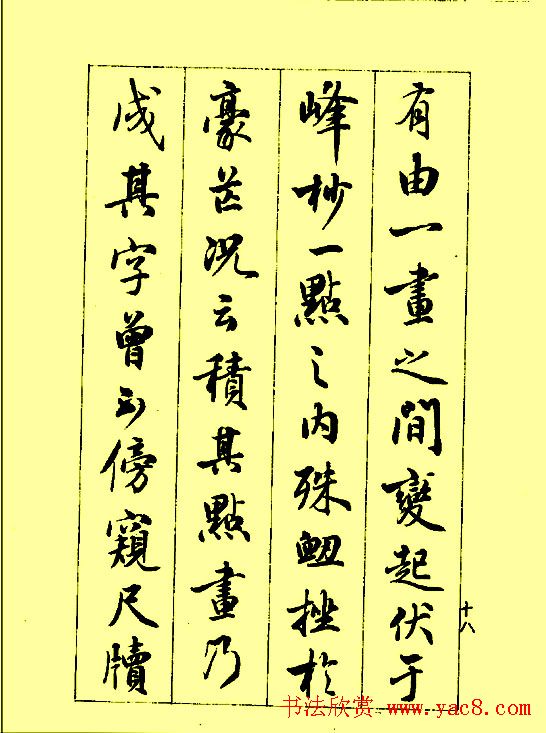 有由一畫之間變起伏于
峰杪一點之内殊衄挫於
豪芒況云積其點畫乃
成其字曾不傍窺尺牘
十八
书法欣赏:www.yac8.com